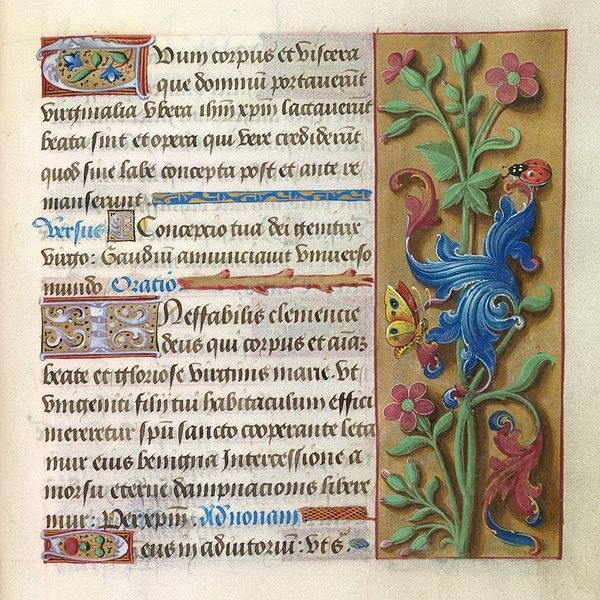 Dum corpus et viscera
que dominū portaverūt
virginalia ubera ihm̄ xpm̄ lactaverūt
beata sint et opera qui vere crediderūt
quod sine labe concepta post et ante ꝑ
manserunt
Versus Concepcio tua dei genitrix
virgo: Gaudiū annunciavit universo
mundo Oratio
Ineffabilis clemencie
deus qui corpus et aīaȝ
beate et gloriose virginis marie. Ut
unigeniti filij tui habitaculum effici
mereretur spū sancto cooperante leta
mur eius benigna intercessione a
morsu eterne dampnacionis libere
mur: Per xpm̄: Ad nonam
Deus in adiutoriū: ut s̄